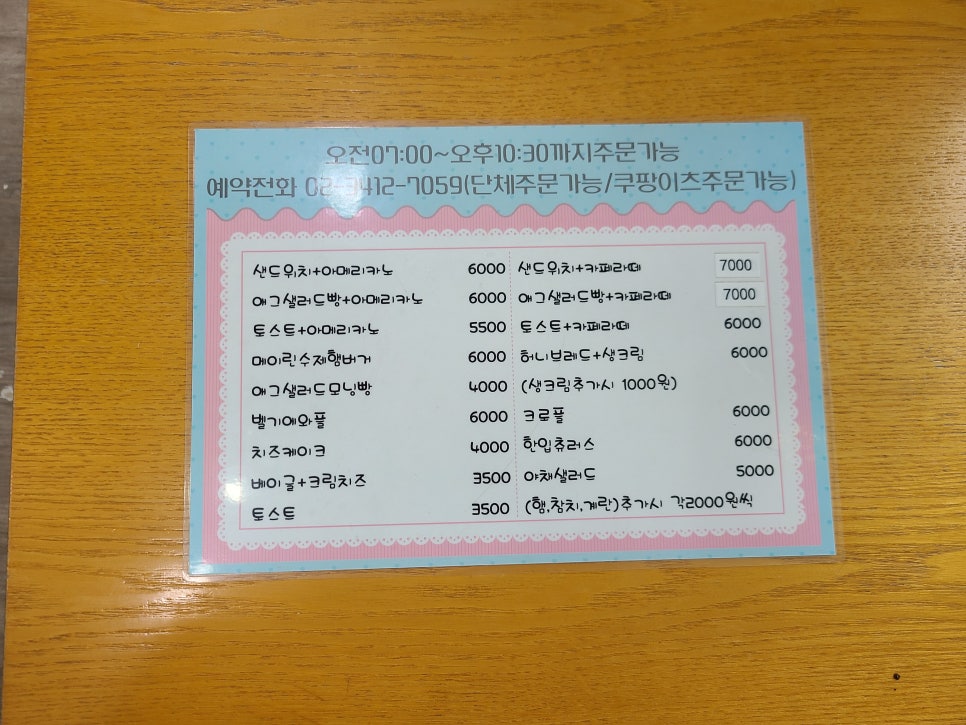 오전07:00~오후10:30까지주문가능
예약전화 02-3412-7059(단체주문가능/쿠팡이츠주문가능)
샌드위치+아메리카노 6000
애그샐러드빵+아메리카노 6000
토스트+아메리카노 5500
메이린수제햄버거 6000
애그샐러드모닝빵 4000
벨기에와플 6000
치즈케이크 4000
베이글+크림치즈 3500
토스트 3500
샌드위치+카페라떼 7000
애그샐러드빵+카페라떼 7000
토스트+카페라떼 6000
허니브레드+생크림 6000
(생크림추가시 1000원)
크로플 6000
한입츄러스 6000
야채샐러드 5000
(햄,참치,계란)추가시 각2000원씩